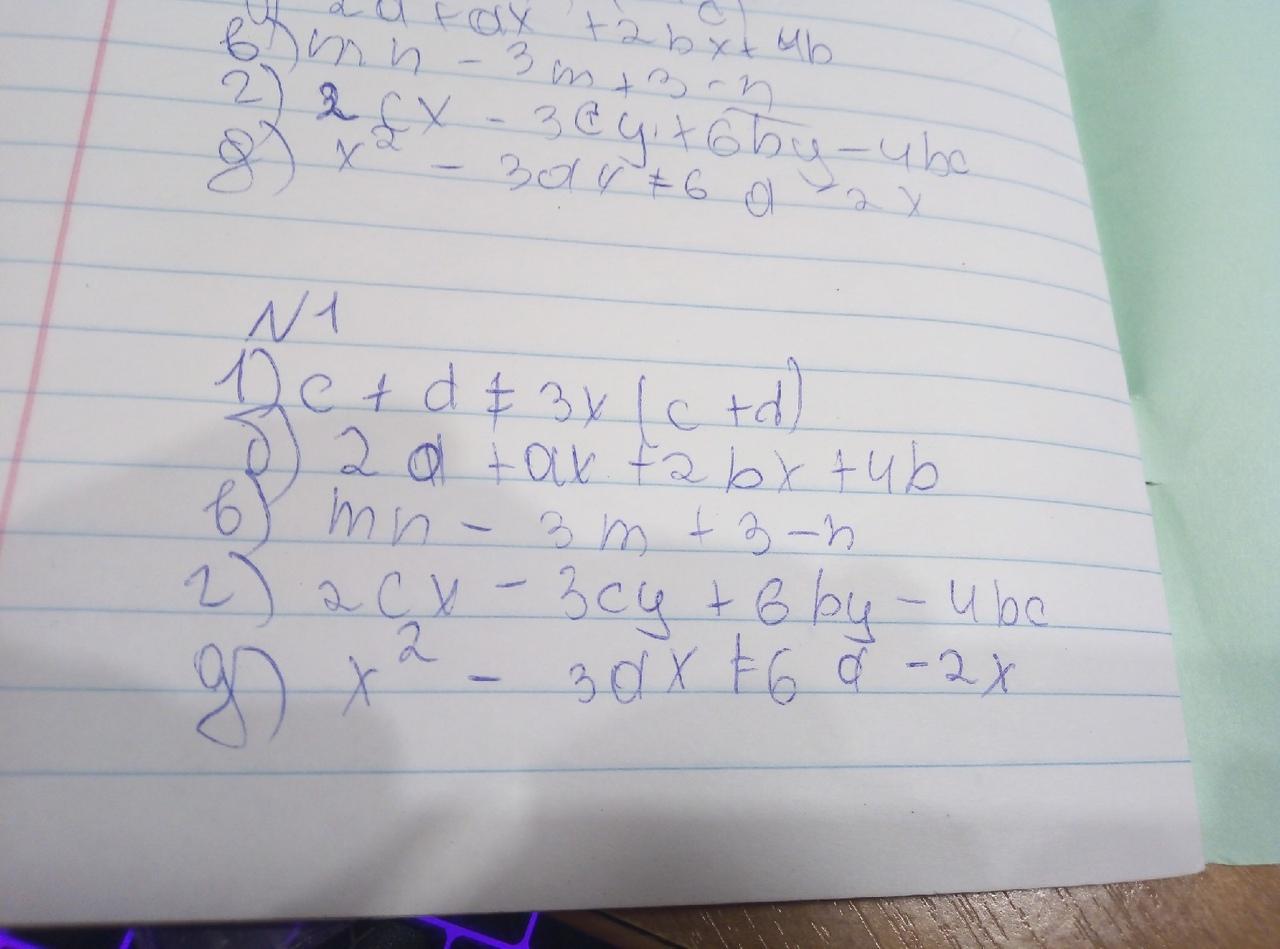 2a + ax + 2bx + 4b
в) mn - 3m + 3 - n
г) 2cx - 3cy + 6by - 4bc
д) x² - 3ax + 6a - 2x
N1
1) c + d + 3x(c + d)
б) 2a + ax + 2bx + 4b
в) mn - 3m + 3 - n
г) 2cx - 3cy + 6by - 4bc
д) x² - 3ax + 6a - 2x